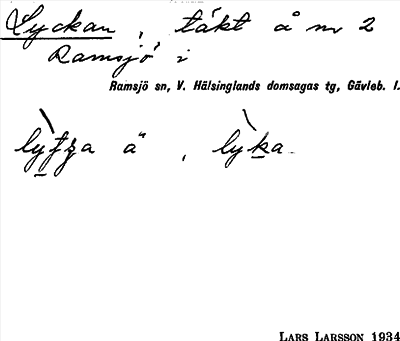 Lyckan, täkt å nr 2
Ramsjö i
Ramsjö sn, V. Hälsinglands domsagas tg, Gävleb. l.
a ̈ , lỳka
LARS LARSSON 1934